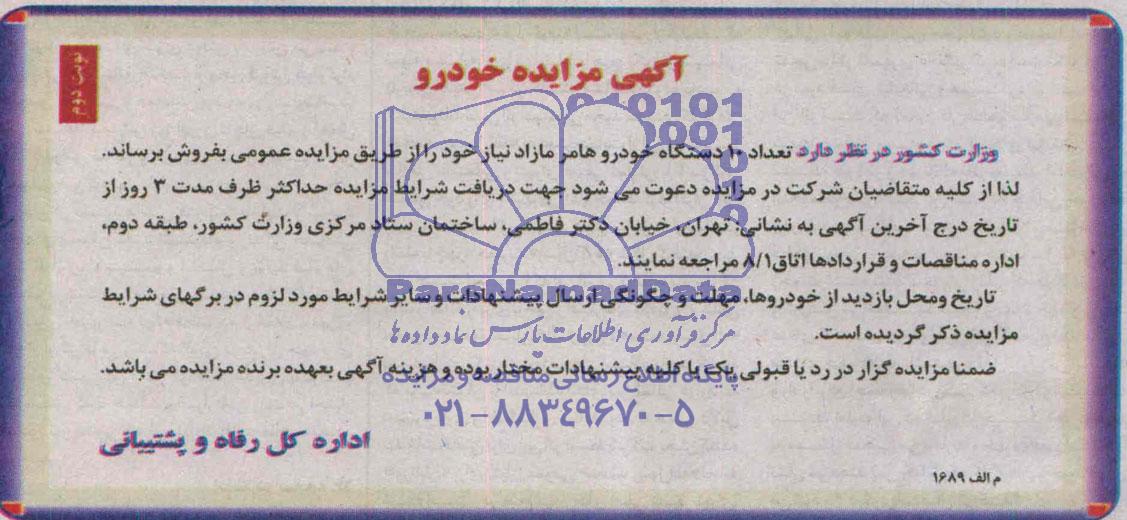 نوبت دوم
آگهی مزایده خودرو
وزارت کشور در نظر دارد تعداد ۱۰ دستگاه خودرو هامر مازاد نیاز خود را از طریق مزایده عمومی بفروش برساند.
لذا از کلیه متقاضیان شرکت در مزایده دعوت می شود جهت دریافت شرایط مزایده حداکثر ظرف مدت ۳ روز از
تاریخ درج آخرین آگهی به نشانی: تهران، خیابان دکتر فاطمی، ساختمان ستاد مرکزی وزارت کشور، طبقه دوم،
اداره مناقصات و قراردادها اتاق ۸/۱ مراجعه نمایند.
تاریخ ومحل بازدید از خودروها، مهلت و چگونگی ارسال پیشنهادات و سایر شرایط مورد لزوم در برگهای شرایط
مزایده ذکر گردیده است.
ضمنا مزایده گزار در رد یا قبولی یک یا کلیه پیشنهادات مختار بوده و هزینه آگهی بعهده برنده مزایده می باشد.
اداره کل رفاه و پشتیبانی
م الف ۱۶۸۹
ParsNamadData
مرکز فرآوری اطلاعات پارس نماد داده ها
پایگاه اطلاع رسانی مناقصه و مزایده
۰۲۱-۸۸۳۴۹۶۷۰-۵